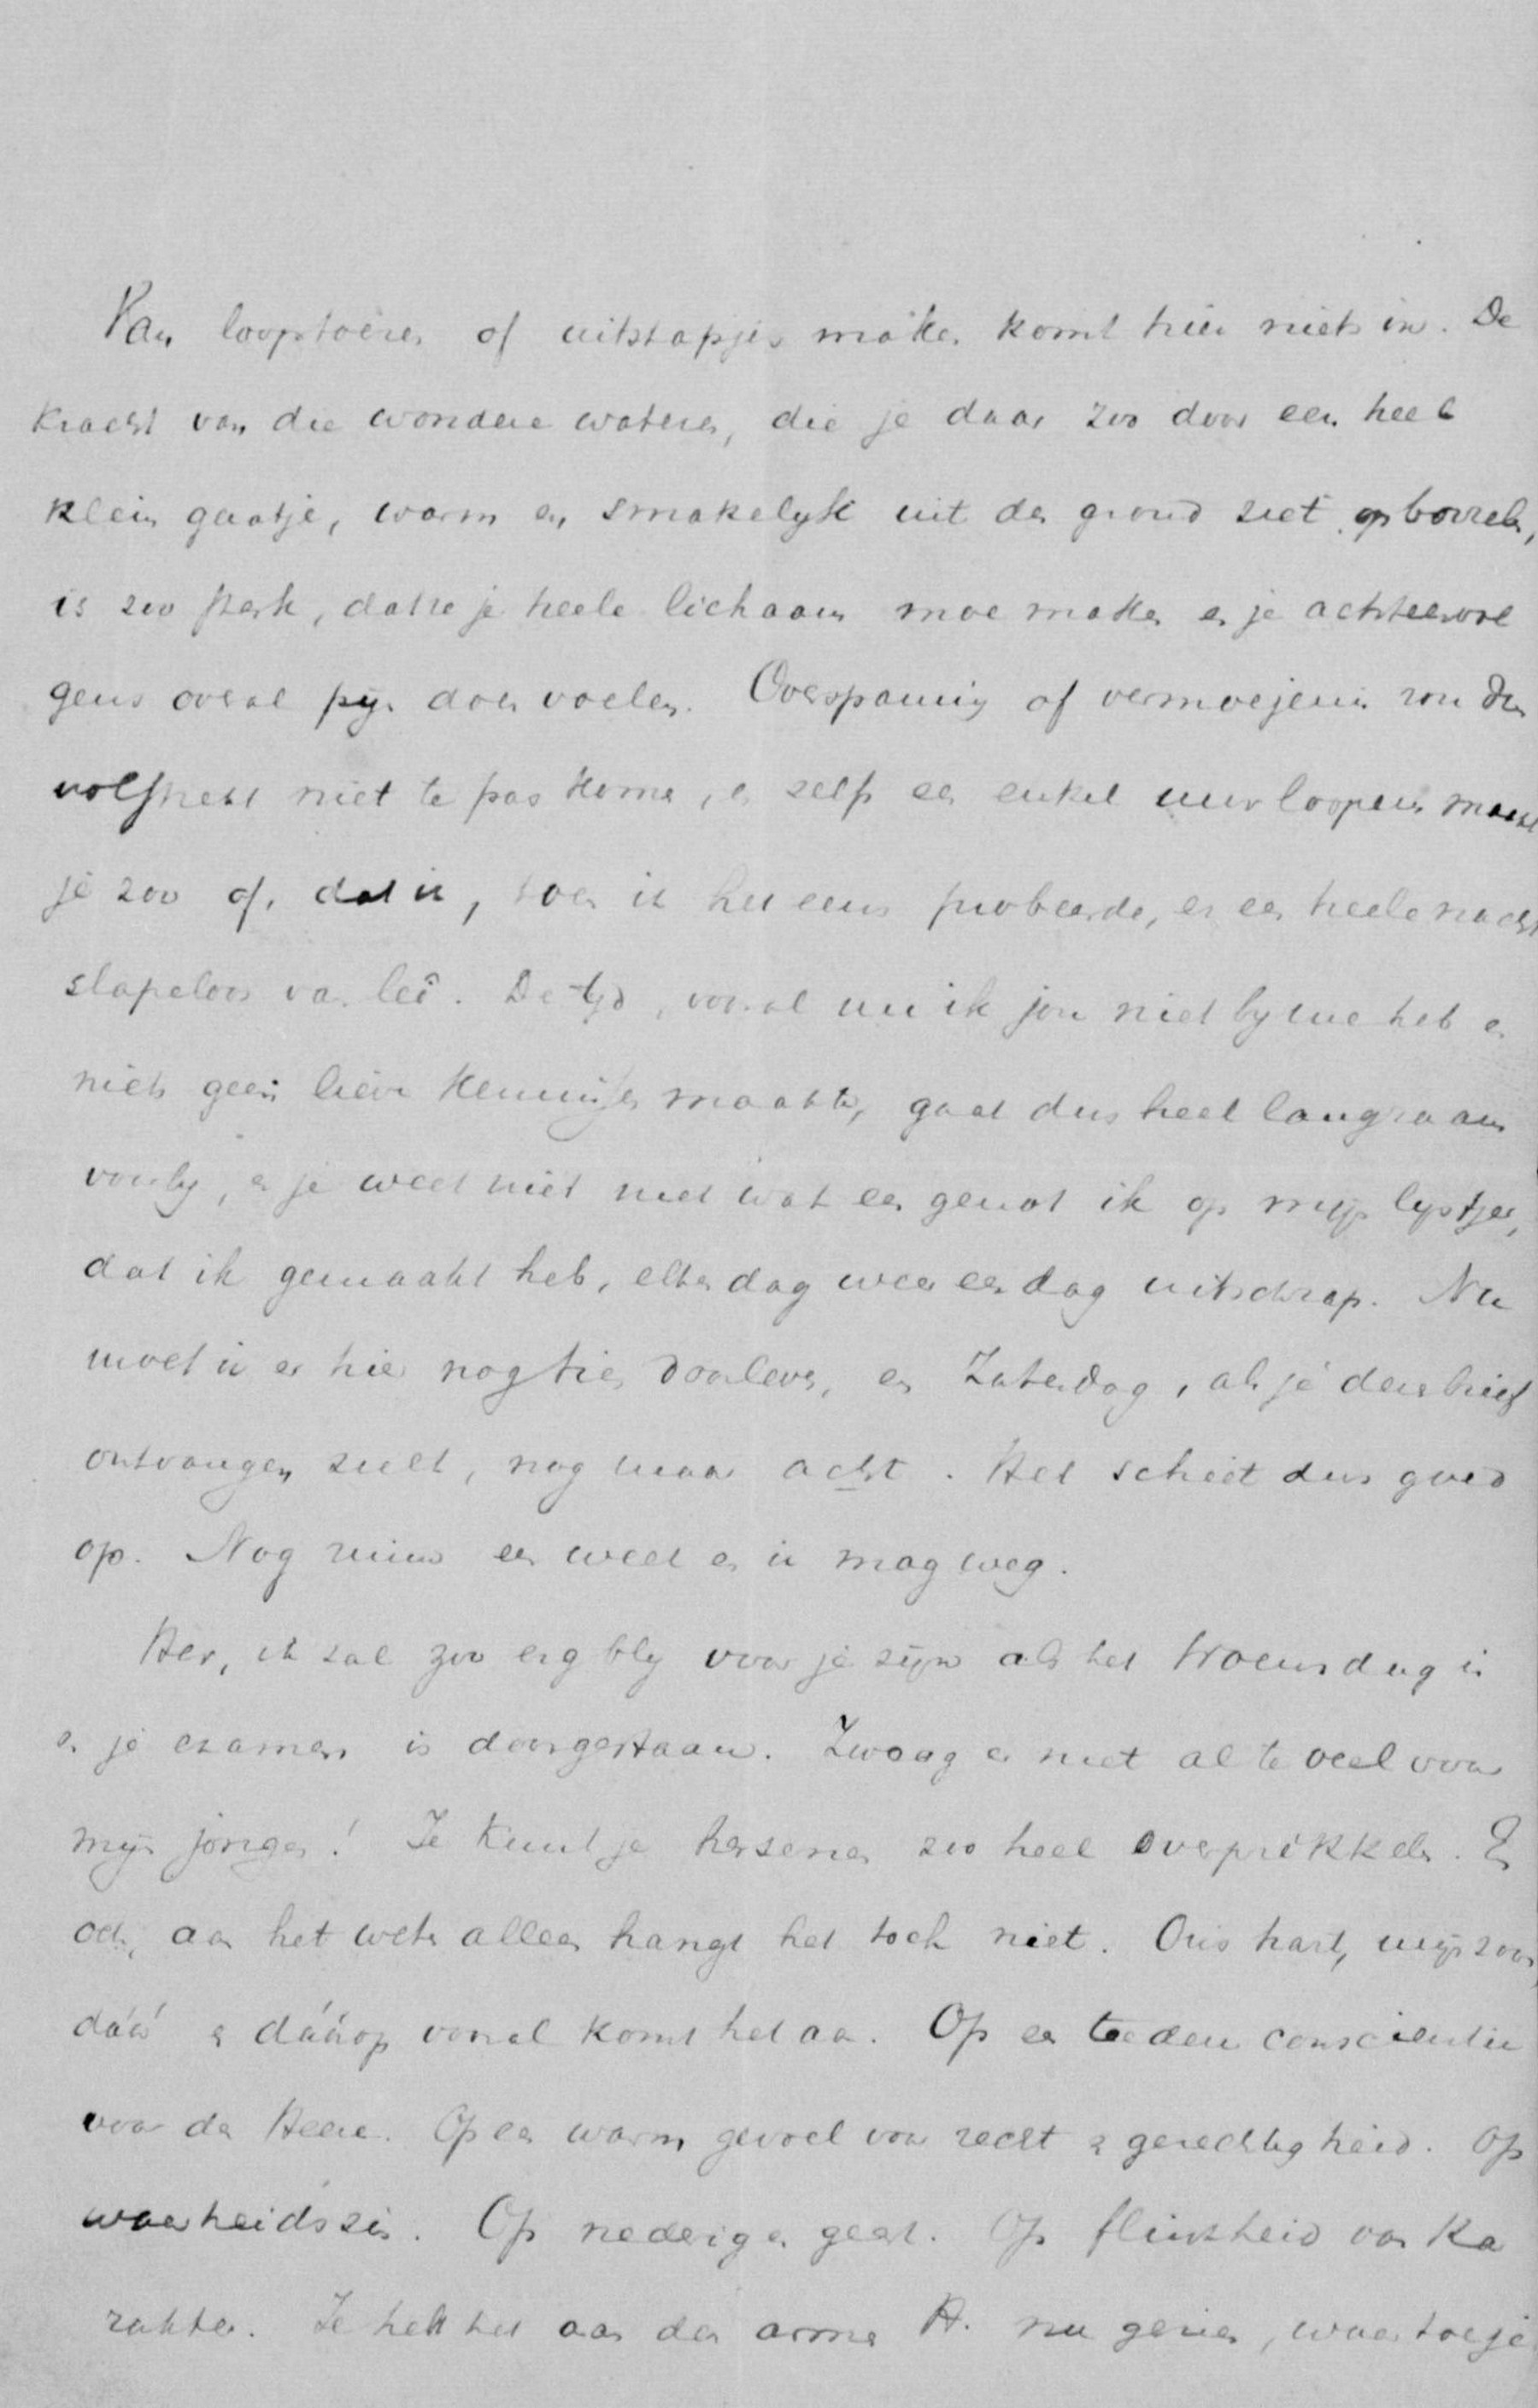 Van looptoeren of uitstapjes maken komt hier niets in. De
kracht van die wondere wateren, die je daar zoo door een heel
klein gaatje, warm en smakelyk uit den grond ziet opborrelen,
is zoo sterk, datze je heele lichaam moe maken en je achtereenvol
gens overal pyn doen voelen. Overspanning of vermoejenis zou dan
volstrekt niet te pas komen, en zelfs een enkel uur loopens maakt
je zoo af, dat ik, toen ik het eens probeerde, er een heele nacht
slapeloos van leî. De tyd, vooral nu ik jou niet by me heb en
niets geen lieve kennisjes maakte, gaat dus heel langzaam
voorby, en je weet niet met wat een genot ik op mijn lystjen,
dat ik gemaakt heb, elken dag weer een dag uitschrap. Nu
moet ik er hier nog tien doorleven, en Zaterdag, als je dezen brief
ontvangen zult, nog maar acht. Het schiet dus goed
op. Nog ruim een week en ik mag weg.
Her, ik zal zoo erg bly voor je zijn als het Woensdag is
en je examen is doorgestaan. Zwoeg er niet al te veel voor
mijn jongen! Je kunt je hersenen zoo heel overprikkelen. En
och, aan het weten alleen hangt het toch niet. Ons hart, mijn zoon,
dáár en dáárop vooral komt het aan. Op een teedere conscientie
voor den Heere. Op een warm gevoel voor recht en gerechtigheid. Op
waarheidszin. Op nederigen geest. Op flinkheid van Ka
rakter. Je hebt het aan den armen H. nu gezien, waartoe je